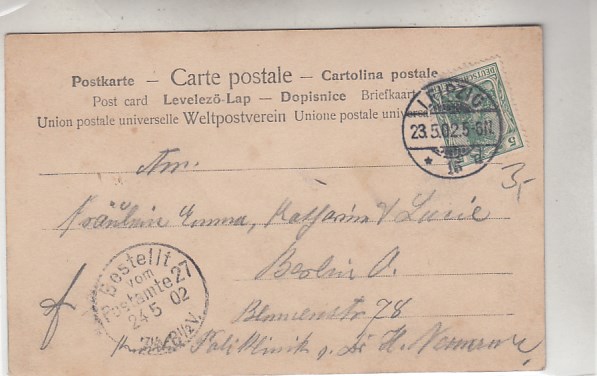 Postkarte – Carte postale – Cartolina postale
Post card Levelező-Lap – Dopisnice Briefkaart
Union postale universelle Weltpostverein Unione postale universa
LEIPZIG
23.5.02.5-6N.
DEUTSCHES
5
3,-
An.
Fräulein Emma, Katharina & Lucie
Berlin O.
Blumenstr 78
Poliklinik
Bestellt
vom
Postamte 27
24 5 02